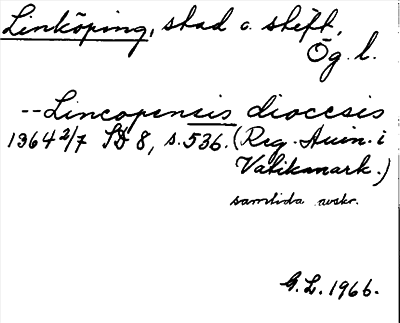 Linköping, stad o. stift,
Ög. l.
--Lincopensis diocesis
1364 2/7 SD 8, s. 536. (Reg. Avin. i
Vatikanark.)
samtida avskr.
G.L. 1966.